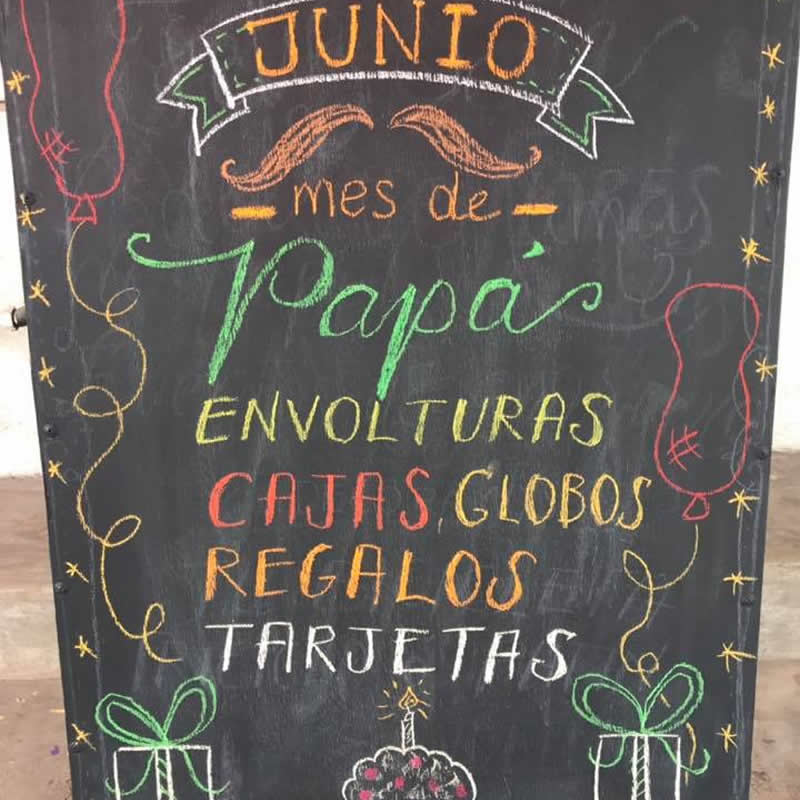 JUNIO
- mes de -
Papá
ENVOLTURAS
CAJAS, GLOBOS
REGALOS
TARJETAS